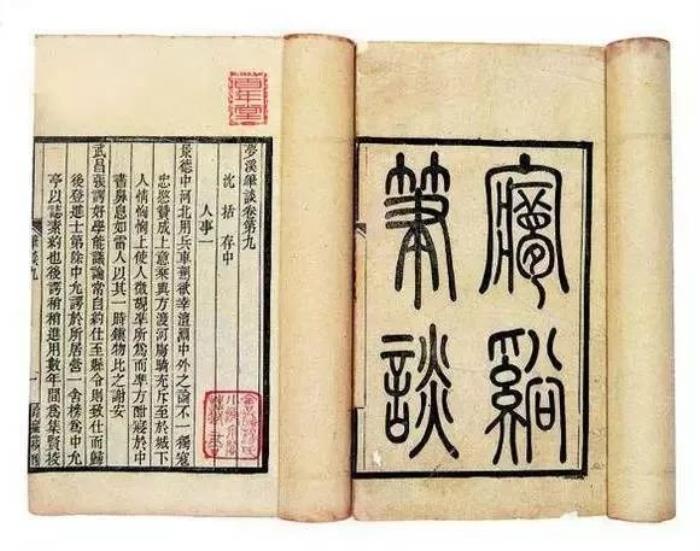 㝱谿
筆談
百年堂
夢溪筆談卷第九
沈括存中
人事一
景德中河北用兵車駕欲幸澶淵中外之論不一獨寇
忠愍贊成上意乘輿方渡河虜騎充斥至於城下
人情恟恟上使人微覘準所爲而準方酣寢於中
書鼻息如雷人以其一時鎮物比之謝安
武昌張諤好學能議論常自約仕至縣令則致仕而歸
後登進士第除中允諤於所居營一舍榜爲中允
亭以誌素約也後諤稍稍進用數年間爲集賢校